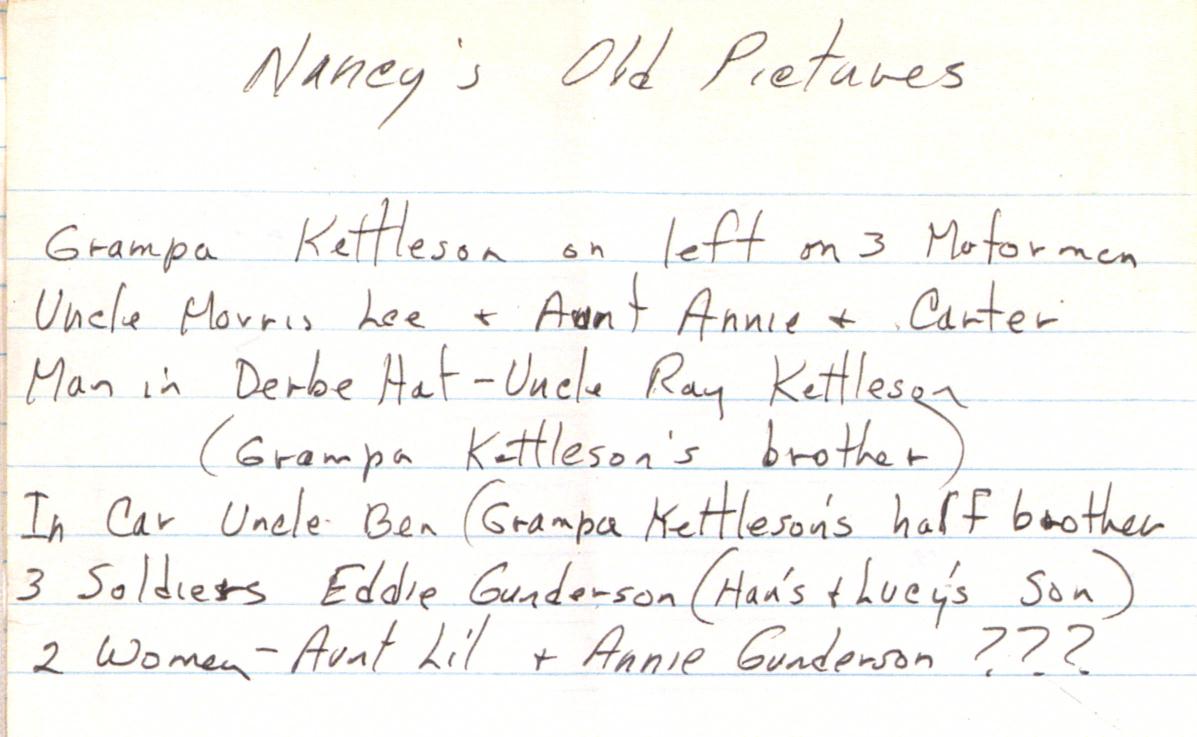 Nancy's Old Pictures
Grampa Kettleson on left on 3 Motormen
Uncle Morris Lee + Aunt Annie + Carter
Man in Derbe Hat - Uncle Ray Kettleson
(Grampa Kettleson's brother)
In Car Uncle Ben (Grampa Kettleson's half brother
3 Soldiers Eddie Gunderson (Han's + Lucy's Son)
2 Women - Aunt Lil + Annie Gunderson ???